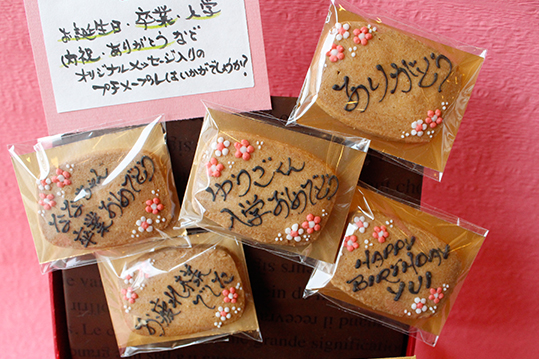 お誕生日・卒業・入学
内祝・ありがとう など
オリジナルメッセージ入りの
プチメープルはいかがでしょうか?
ありがとう
ななちゃん
卒業おめでとう
ゆうごくん
入学おめでとう
お疲れ様
でした
HAPPY
BIRTHDAY
YUI